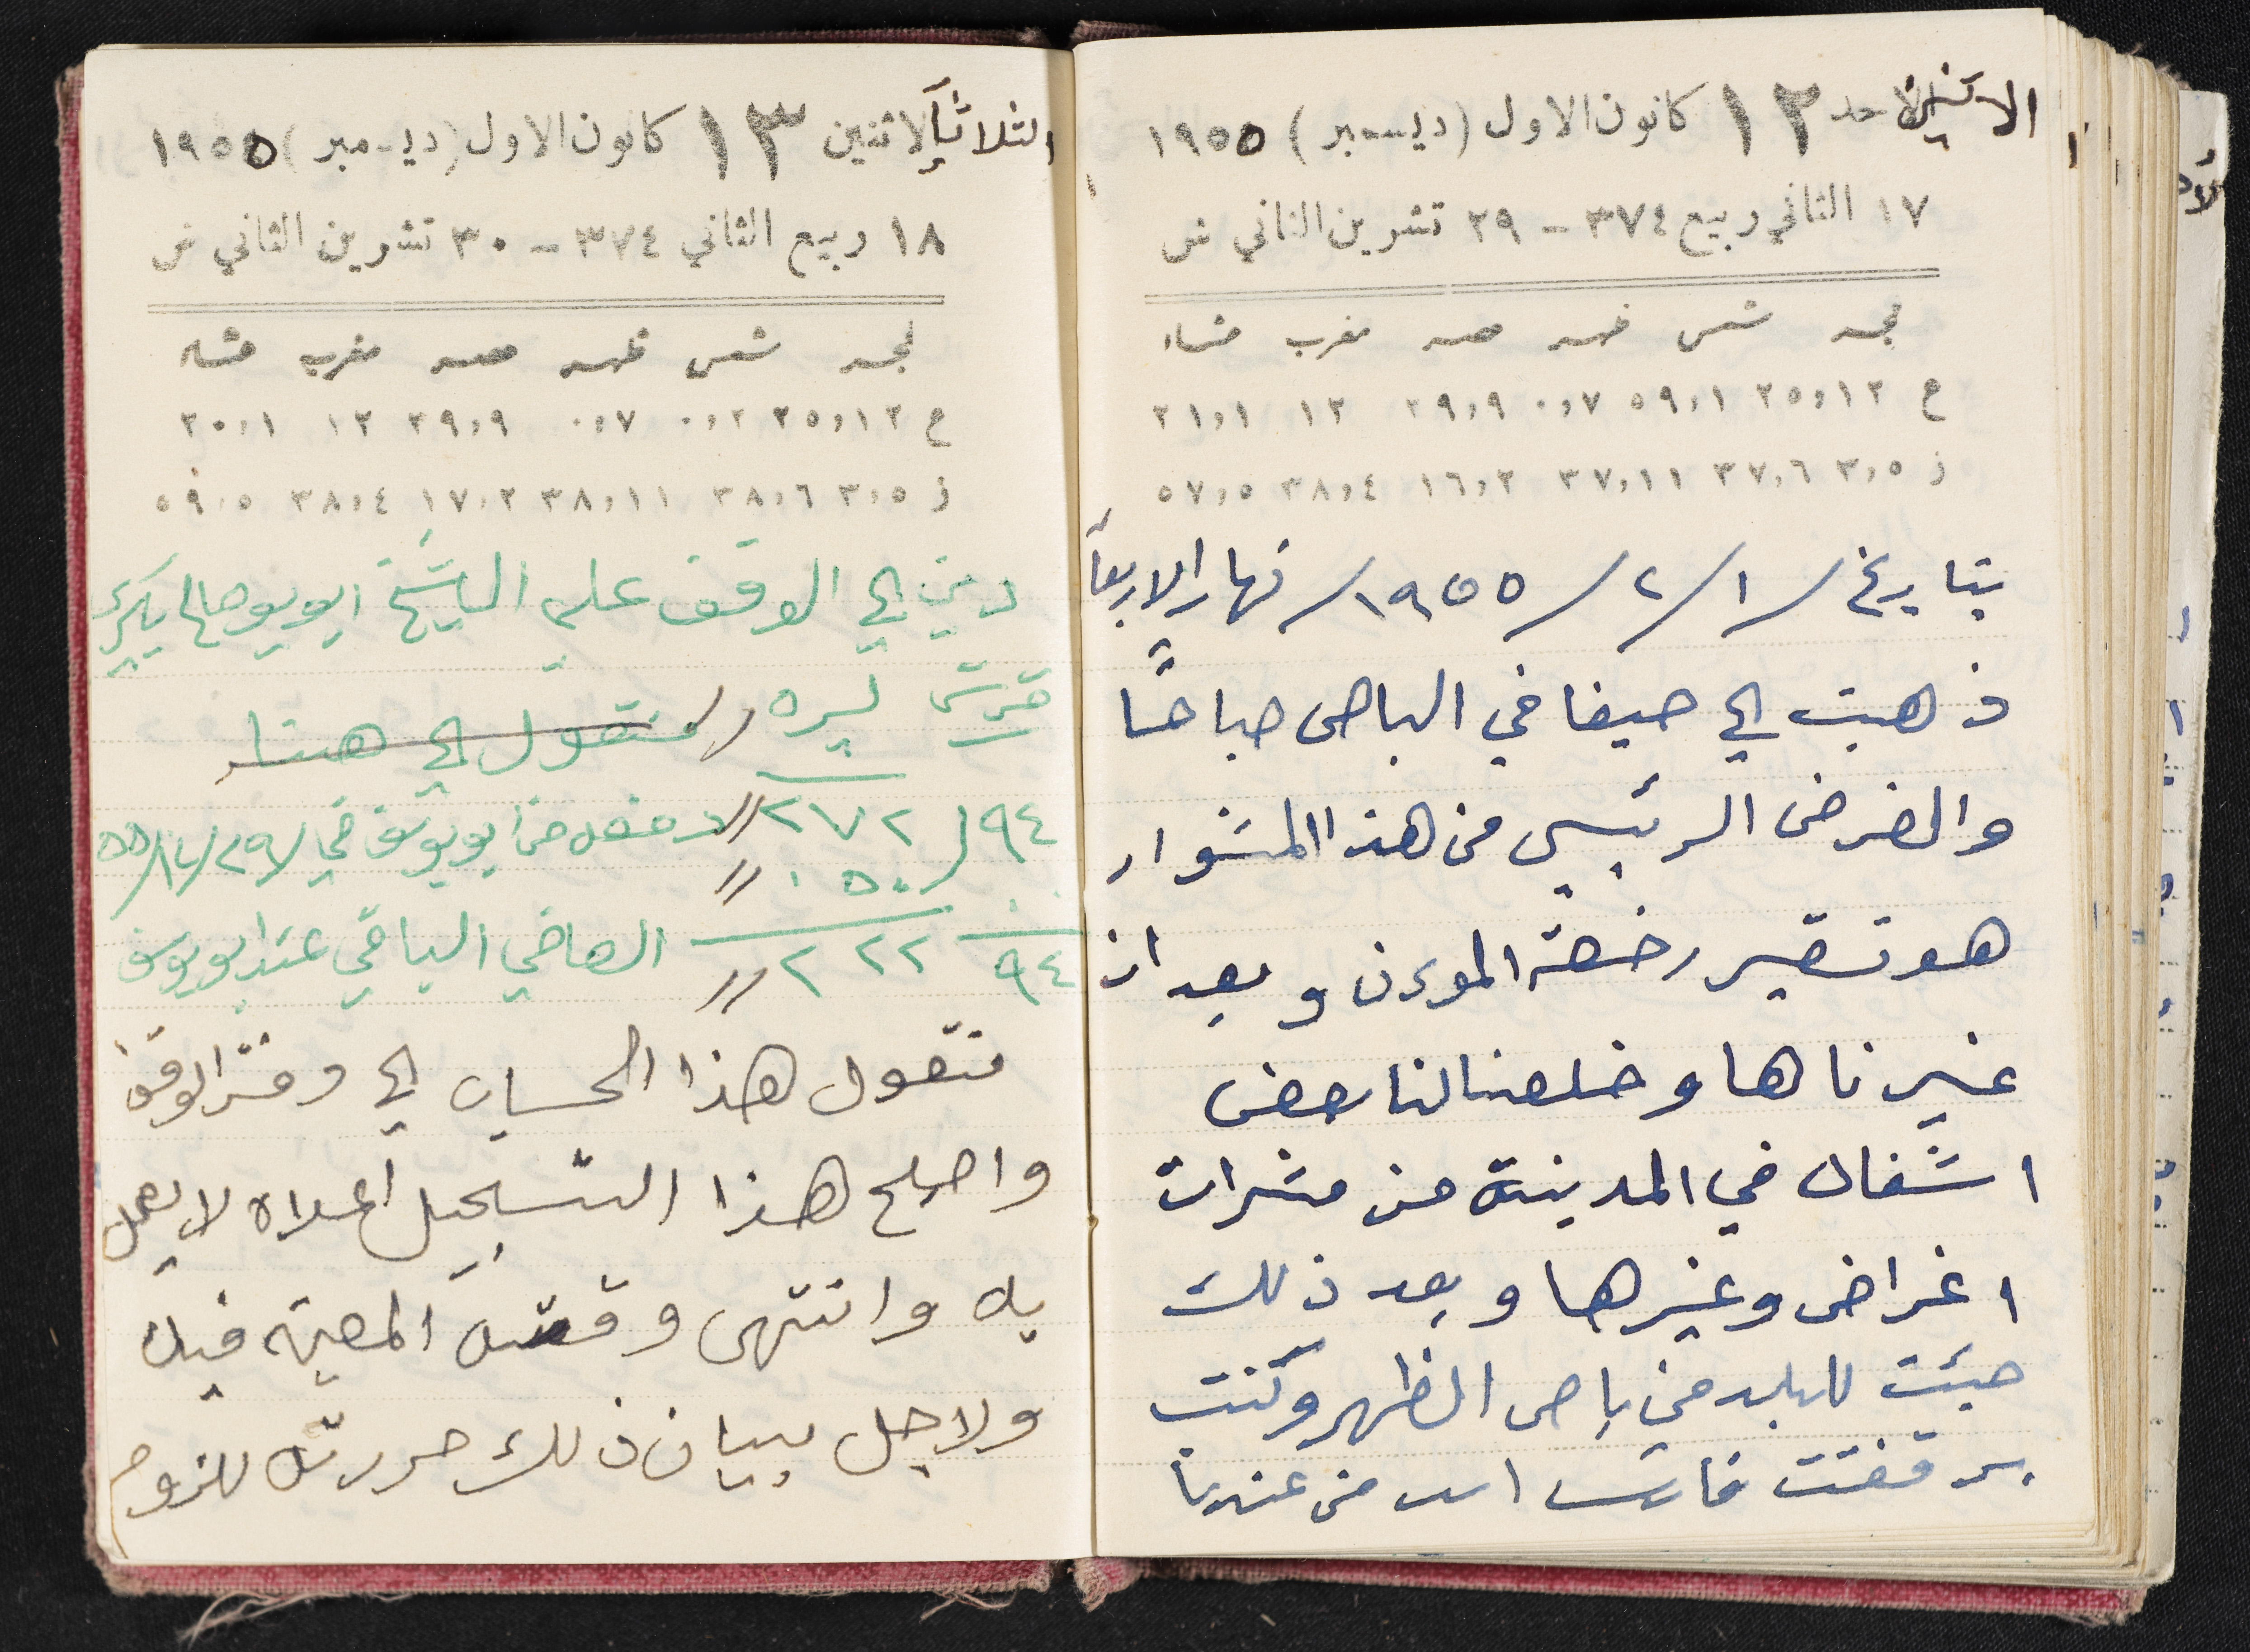 الاثنين الاحد ١٢ كانون الاول (ديسمبر) ١٩٥٥
١٧ الثاني ربيع ٣٧٤ - ٢٩ تشرين الثاني ش
فجر شمس ظهر عصر مغرب عشاء
ع ٢٥،١٢ ٥٩،١ ٠،٧ ٢٩،٩ ١٢ ٢١،١
ز ٣،٥ ٣٧،٦ ٣٧،١١ ١٦،٢ ٣٨،٤ ٥٧،٥
بتاريخ /١/٢/١٩٥٥/ نهار الاربعاً
ذهبت الى حيفا في الباص صباحاً
والغرض الرئيسي من هذا المشوار
هو تغير رخصة الموءن وبعد ان
غيرناها وخلصنا لنا بعض
اشغال في المدينة من مشرات
اغراض وغيرها وبعد ذلك
جيئت للبلد من باص الظهر وكنت
برفقتت فارس اسد من عندنا
الثلاثآ الاثنين ١٣ كانون الاول (ديسمبر) ١٩٥٥
١٨ ربيع الثاني ٣٧٤ - ٣٠ تشرين الثاني ش
فجر شمس ظهر عصر مغرب عشاء
ع ٢٥،١٢ ٠،٢ ٠،٧ ٢٩،٩ ١٢ ٢٠،١
ز ٣،٥ ٣٨،٦ ٣٨،١١ ١٧،٢ ٣٨،٤ ٥٩،٥
دين الى الوقف على الشيخ ابو يوسف
قرش ليره // منقول الى هنا
٩٤ / ٢٧٢ // دفعه من ابو يوسف في ٢٩/١٢/٥٥
٠٠ / ٠٥٠ //
٩٤ ٢٢٢ // الصافي الباقي عند ابو يوسف
منقول هذا الحساب الى دفتر الوقف
واصبح هذا التسجيل اعلاه لا يعمل
به وانتهى وقته المعين فيه
ولاجل بيان ذلك حررته للزوم